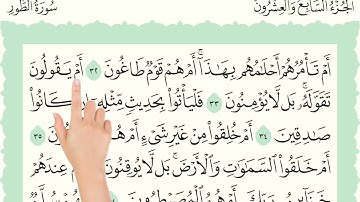 الجزء السابع والعشرون
سورة الطور
أَمْ تَأْمُرُهُمْ أَحْلَـٰمُهُم بِهَـٰذَآ ۚ أَمْ هُمْ قَوْمٌ طَاغُونَ ٣٢ أَمْ يَقُولُونَ
تَقَوَّلَهُۥ ۚ بَل لَّا يُؤْمِنُونَ ٣٣ فَلْيَأْتُوا۟ بِحَدِيثٍ مِّثْلِهِۦٓ إِن كَانُوا۟
صَـٰدِقِينَ ٣٤ أَمْ خُلِقُوا۟ مِنْ غَيْرِ شَىْءٍ أَمْ هُمُ ٣٥
أَمْ خَلَقُوا۟ ٱلسَّمَـٰوَٰتِ وَٱلْأَرْضَ ۚ بَل لَّا يُوقِنُونَ عِندَهُمْ
خَزَآئِنُ رَبِّكَ أَمْ هُمُ